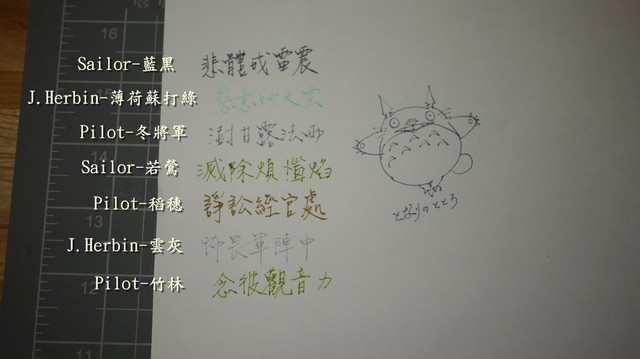 Sailor-藍黑 悲體戒雷震
J.Herbin-薄荷蘇打綠 慈意妙大雲
Pilot-冬將軍 澍甘露法雨
Sailor-若鶯 滅除煩惱焰
Pilot-稻穗 諍訟經官處
J.Herbin-雲灰 怖畏軍陣中
Pilot-竹林 念彼觀音力
となりのトトロ
16
15
14
13
12
11